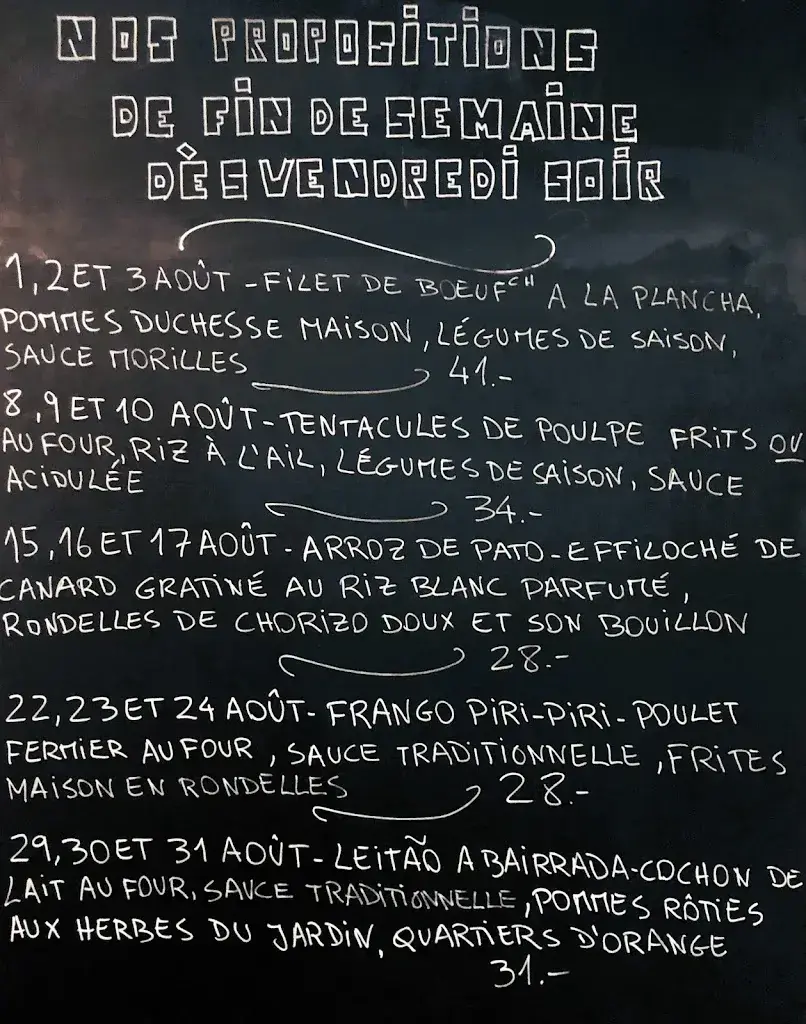 NOS PROPOSITIONS
DE FIN DE SEMAINE
DÈS VENDREDI SOIR
1,2 ET 3 AOÛT - FILET DE BOEUF CH A LA PLANCHA,
POMMES DUCHESSE MAISON, LÉGUMES DE SAISON,
SAUCE MORILLES
41.-
8,9 ET 10 AOÛT - TENTACULES DE POULPE FRITS OU
AU FOUR, RIZ À L'AIL, LÉGUMES DE SAISON, SAUCE
ACIDULÉE
34.-
15,16 ET 17 AOÛT - ARROZ DE PATO - EFFILOCHÉ DE
CANARD GRATINÉ AU RIZ BLANC PARFUMÉ,
RONDELLES DE CHORIZO DOUX ET SON BOUILLON
28.-
22,23 ET 24 AOÛT - FRANGO PIRI-PIRI - POULET
FERMIER AU FOUR, SAUCE TRADITIONNELLE, FRITES
MAISON EN RONDELLES 28.-
29,30 ET 31 AOÛT - LEITÃO A BAIRRADA - COCHON DE
LAIT AU FOUR, SAUCE TRADITIONNELLE, POMMES RÔTIES
AUX HERBES DU JARDIN, QUARTIERS D'ORANGE
31.-